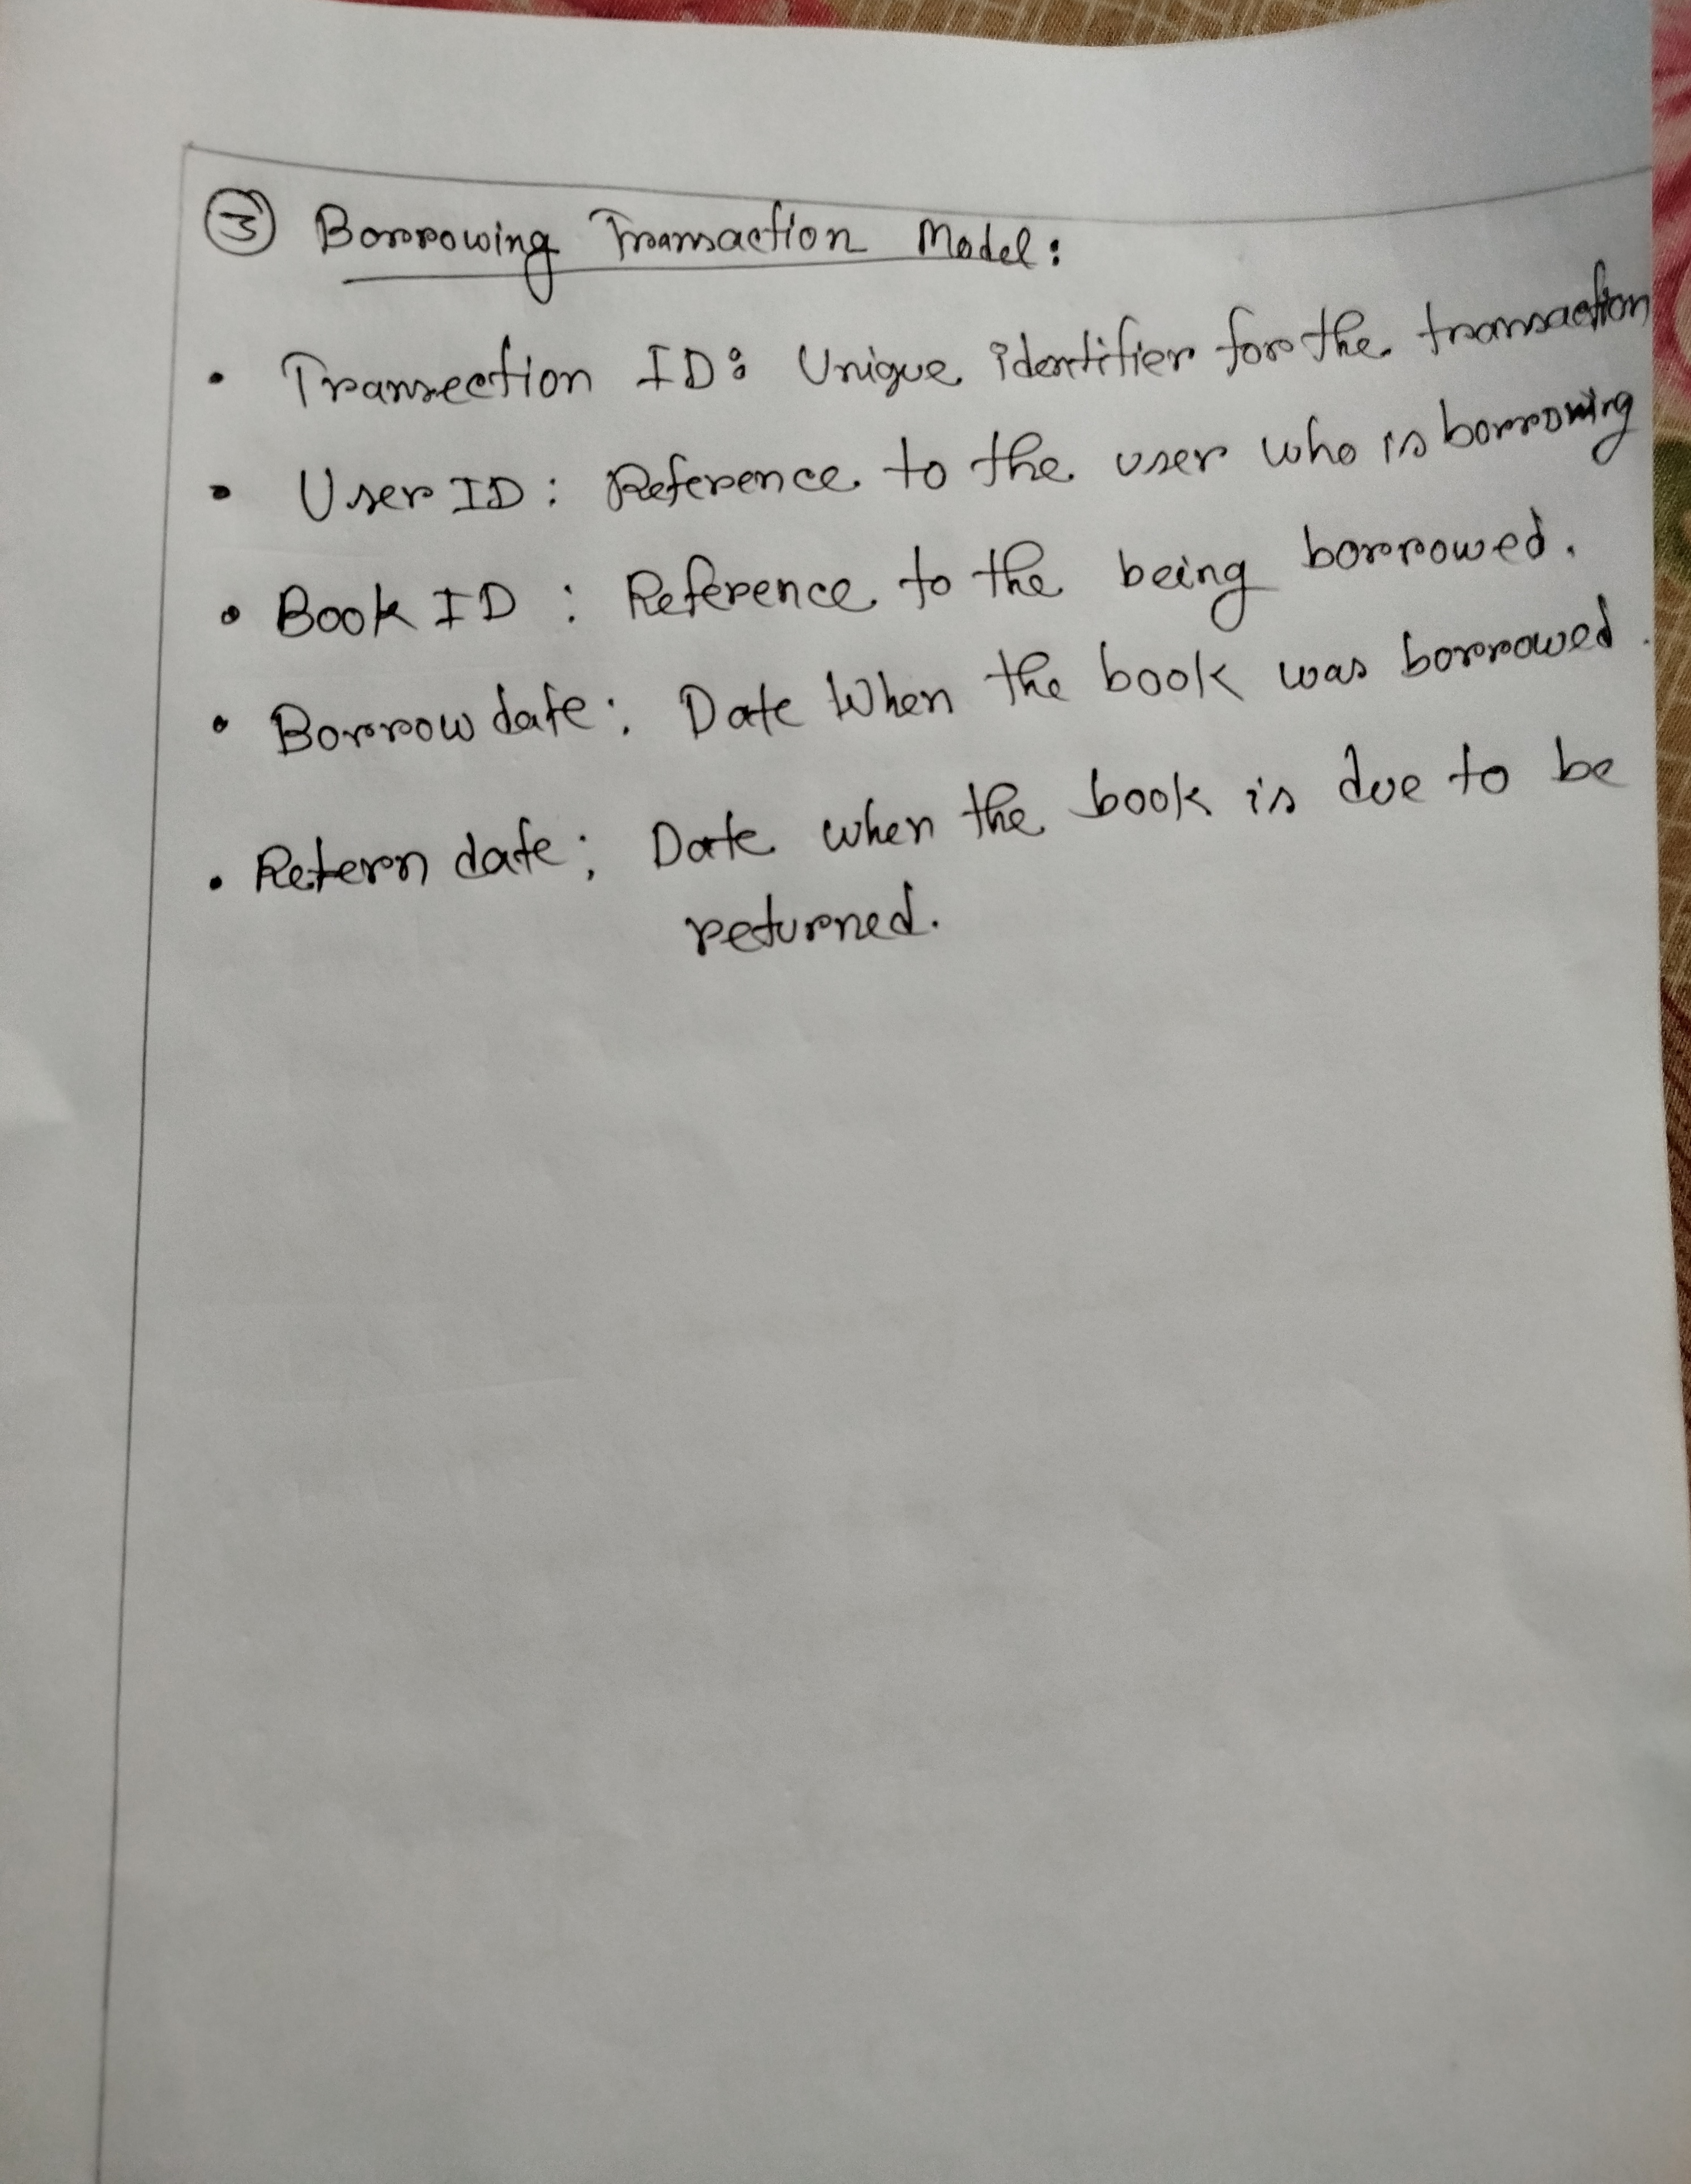 ③ Borrowing Transaction Model:
• Transection ID: Unique identifier for the transaction
• User ID: Reference to the user who is borrowing
• Book ID : Reference to the being borrowed.
• Borrow date: Date When the book was borrowed.
• Retern date: Date when the book is due to be
returned.